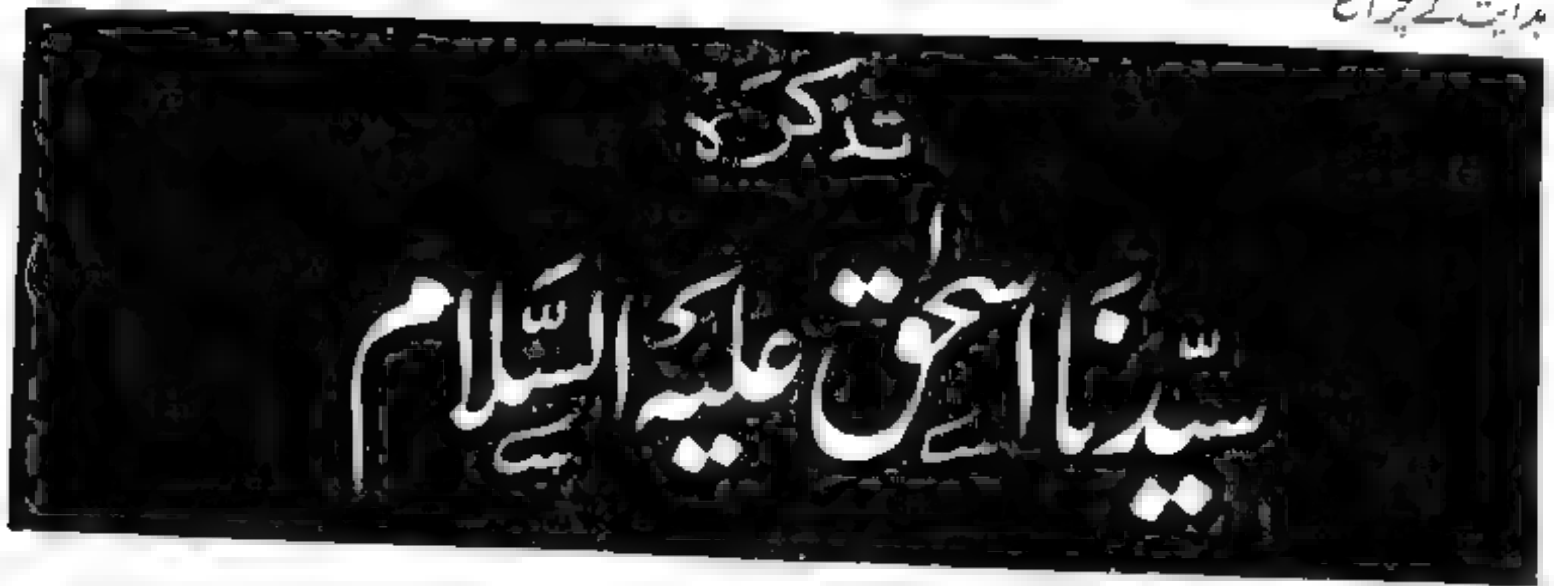 ہدایت کے چراغ
تذکرَہ
سیّدنَا اسحٰق علیہِ السَّلام